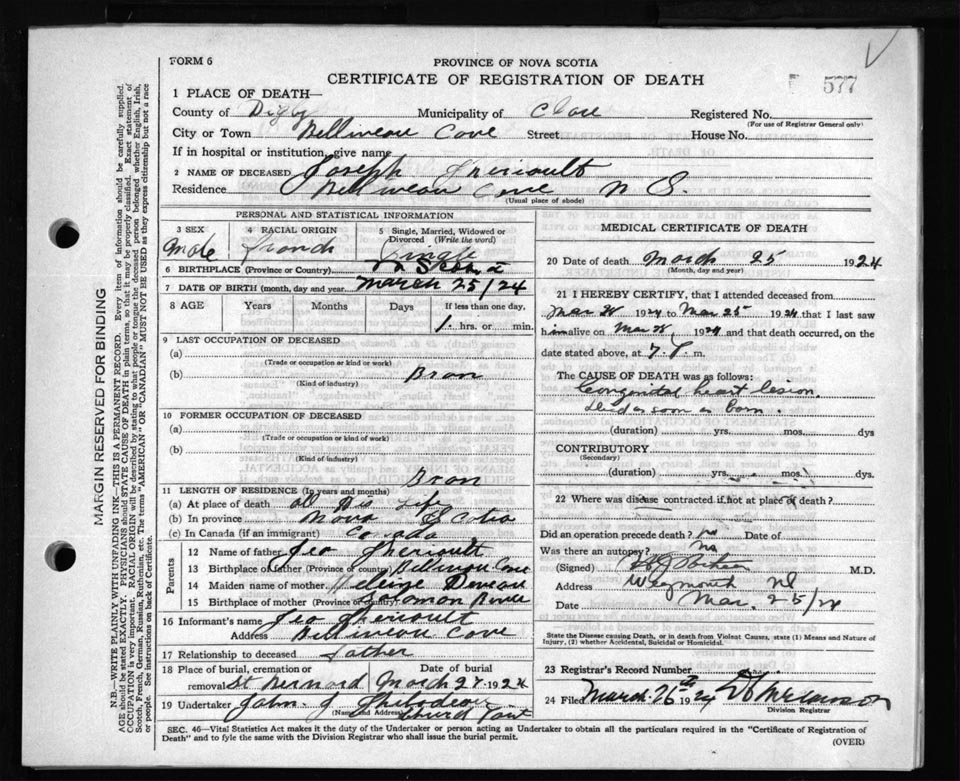 FORM 6
PROVINCE OF NOVA SCOTIA
CERTIFICATE OF REGISTRATION OF DEATH
577
1 PLACE OF DEATH—
County of Digby Municipality of Clare Registered No.
(For use of Registrar General only)
City or Town Belliveau Cove Street House No.
If in hospital or institution, give name
2 NAME OF DECEASED Joseph Theriault
Residence Belliveau Cove N S.
(Usual place of abode)
PERSONAL AND STATISTICAL INFORMATION
3 SEX Male
4 RACIAL ORIGIN French
5 Single, Married, Widowed or Divorced (Write the word) Single
6 BIRTHPLACE (Province or Country) N Scotia
7 DATE OF BIRTH (month, day and year) March 25/24
8 AGE Years Months Days If less than one day,
1 hrs. or min.
9 LAST OCCUPATION OF DECEASED
(a)
(Trade or occupation or kind of work)
(b)
(Kind of industry)
10 FORMER OCCUPATION OF DECEASED
(a)
(Trade or occupation or kind of work)
(b)
(Kind of industry)
11 LENGTH OF RESIDENCE (In years and months)
(a) At place of death all His Life
(b) In province Nova Scotia
(c) In Canada (if an immigrant) Canada
Parents
12 Name of father Geo Theriault
13 Birthplace of father (Province or country) Belliveau Cove
14 Maiden name of mother Deveau
15 Birthplace of mother (Province or country) Solomon River
16 Informant's name Geo Theriault
Address Belliveau Cove
17 Relationship to deceased Father
18 Place of burial, cremation or removal St Bernard Date of burial March 27 1924
19 Undertaker John J
(Name and Address) Church Point
MEDICAL CERTIFICATE OF DEATH
20 Date of death March 25 1924
(Month, day and year)
21 I HEREBY CERTIFY, that I attended deceased from
Mar 1924 to Mar 25 1924 that I last saw
him alive on Mar 1924 and that death occurred, on the
date stated above, at 7.P.m.
The CAUSE OF DEATH was as follows:
Congenital heart lesion.
died as soon as born.
(duration) yrs. mos. dys
CONTRIBUTORY
(Secondary)
(duration) yrs. mos. dys.
22 Where was disease contracted if not at place of death?
Did an operation precede death? no Date of
Was there an autopsy? no
(Signed) M.D.
Address Weymouth NS
Date Mar. 25/24
State the Disease causing Death, or in death from Violent Causes, state (1) Means and Nature of
Injury, (2) whether Accidental, Suicidal or Homicidal.
23 Registrar's Record Number
24 Filed March 26th 1924
Division Registrar
SEC. 46—Vital Statistics Act makes it the duty of the Undertaker or person acting as Undertaker to obtain all the particulars required in the "Certificate of Registration of
Death" and to fyle the same with the Division Registrar who shall issue the burial permit.
(OVER)
MARGIN RESERVED FOR BINDING
N.B.—WRITE PLAINLY WITH UNFADING INK—THIS IS A PERMANENT RECORD. Every item of information should be carefully supplied.
AGE should be stated EXACTLY. PHYSICIANS should STATE CAUSE OF DEATH in plain terms, so that it may be properly classified. Exact statement of
OCCUPATION is very important. RACIAL ORIGIN will be described by stating to what people or tongue the deceased person belonged whether English, Irish,
Scotch, French, German, Russian, Ruthenian, etc. The terms "AMERICAN" OR "CANADIAN" MUST NOT BE USED as they express citizenship but not a race
or people. See instructions on back of Certificate.